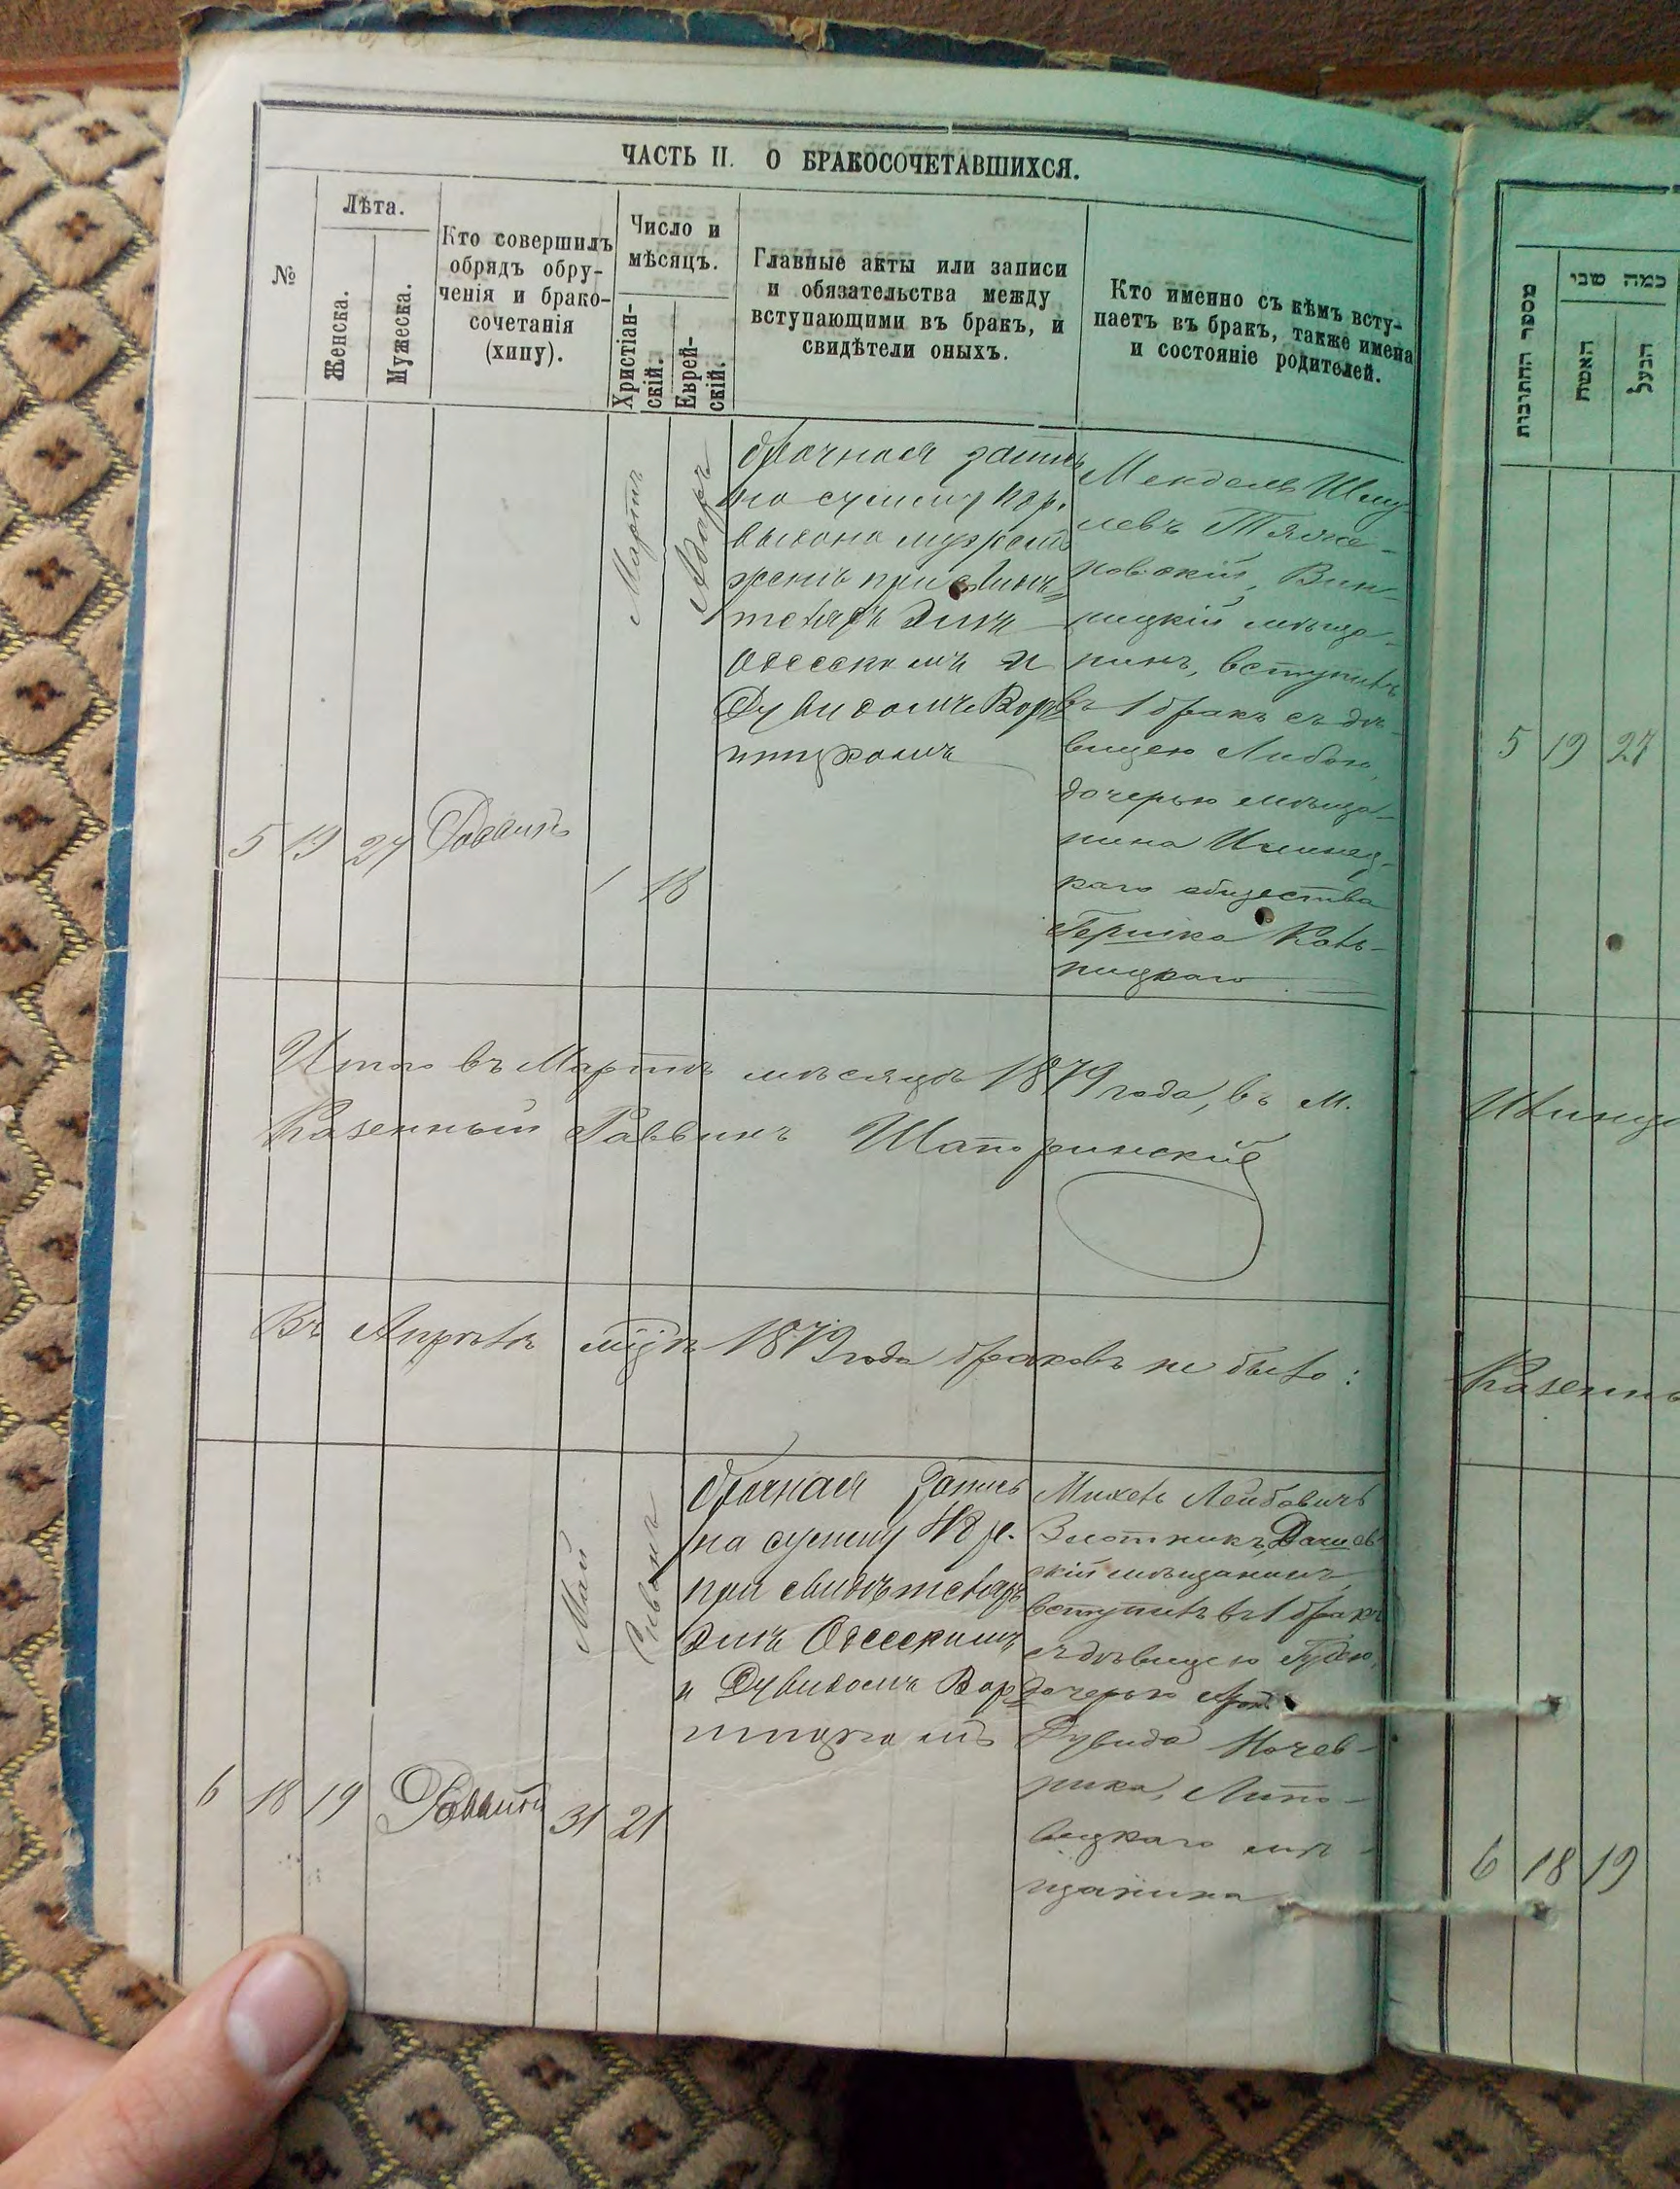 ЧАСТЬ II. О БРАКОСОЧЕТАВШИХСЯ.
№
Лѣта.
Женска.
Мужеска.
Кто совершилъ
обрядъ обру-
ченія и брако-
сочетанія
(хипу).
Число и
мѣсяцъ.
Христіан-
скій.
Еврей-
скій.
Главные акты или записи
и обязательства между
вступающими въ бракъ, и
свидѣтели оныхъ.
Кто именно съ кѣмъ всту-
паетъ въ бракъ, также имена
и состояніе родителей.
5
19
27
Раввинъ
Мартъ
1
Адаръ
18
брачная запись
на сумму 48 р.
при свидѣ-
теляхъ
Одесскомъ и
Дувидомъ Вор-
Мендель Шму
левъ Тяже-
ловскій, Вин-
ницкій мѣща-
нинъ, вступилъ
въ 1 бракъ съ дѣ-
вицею Либою,
дочерью мѣща-
нина Илинец-
каго общества
Гершка Каль-
ницкаго
Итого въ Мартѣ мѣсяцѣ 1879 года, въ м.
Казенный Раввинъ
Въ Апрѣлѣ мцѣ 1879 года браковъ не было:
6
18
19
Раввинъ
Май
31
Сиванъ
21
брачная запись
на сумму 48 р.
при свидѣтеляхъ
Одесскимъ
и Дувидомъ Вор-
Михель Лейбовичъ
Злотникъ, Дашев-
скій мѣщанинъ,
вступилъ въ 1 бракъ
съ дѣвицею
дочерью
Дувида
Липо-
вецкаго мѣ-
щанина
מספר החתונות
כמה שני
האשה
הבעל
5
19
27
Илинц
Казенн
6
18
19